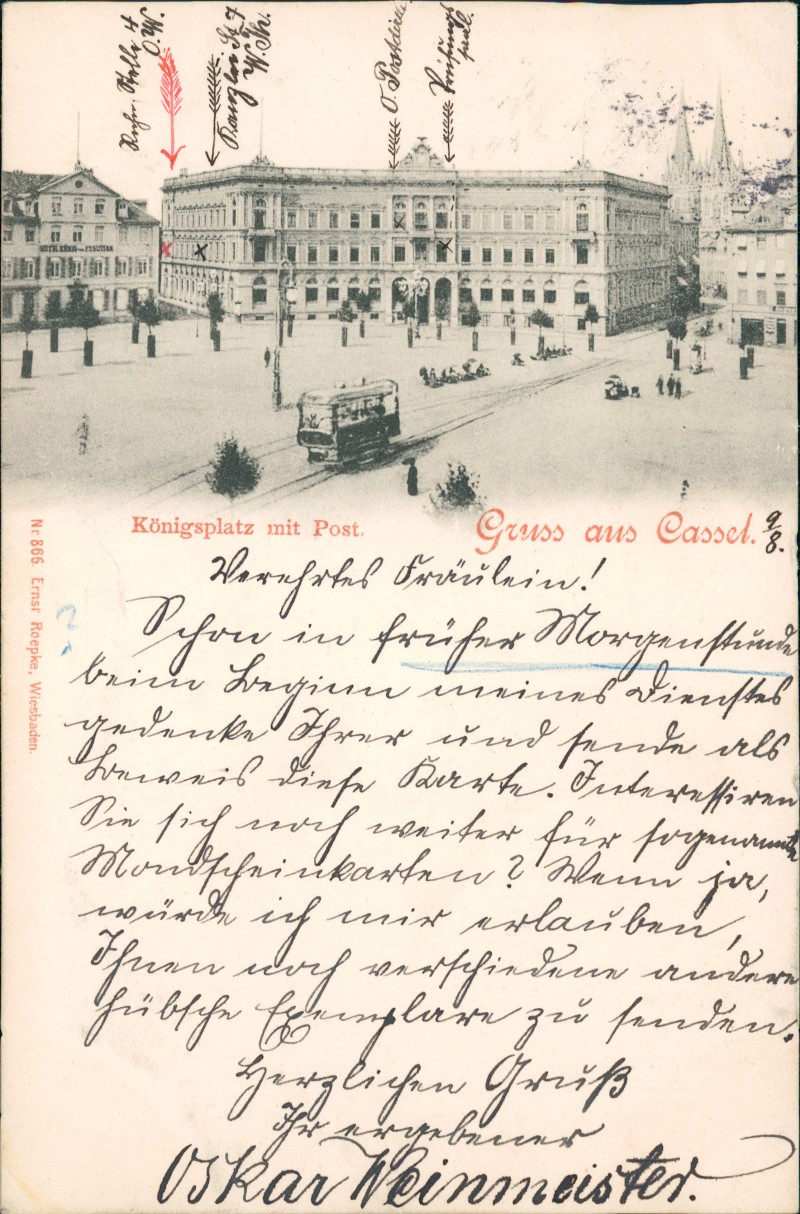 Rechn. Stelle 4
N.O.
Kanzlei St 7
W. Th.
O. Postdir
Prüfungs
saal.
HÔTEL KÖNIG VON PREUSSEN
Königsplatz mit Post.
Gruss aus Cassel.
9/8.
Nr. 866 Ernst Roepke, Wiesbaden.
?
Verehrtes Fräulein!
Schon in früher Morgenstunde
beim Beginn meines Dienstes
gedenke Ihrer und sende als
Beweis diese Karte. Interessiren
Sie sich noch weiter für sogenannte
Mondscheinkarten? Wenn ja,
würde ich mir erlauben,
Ihnen noch verschiedene andere
hübsche Exemplare zu senden.
Herzlichen Gruß
Ihr ergebener
Oskar Weinmeister.